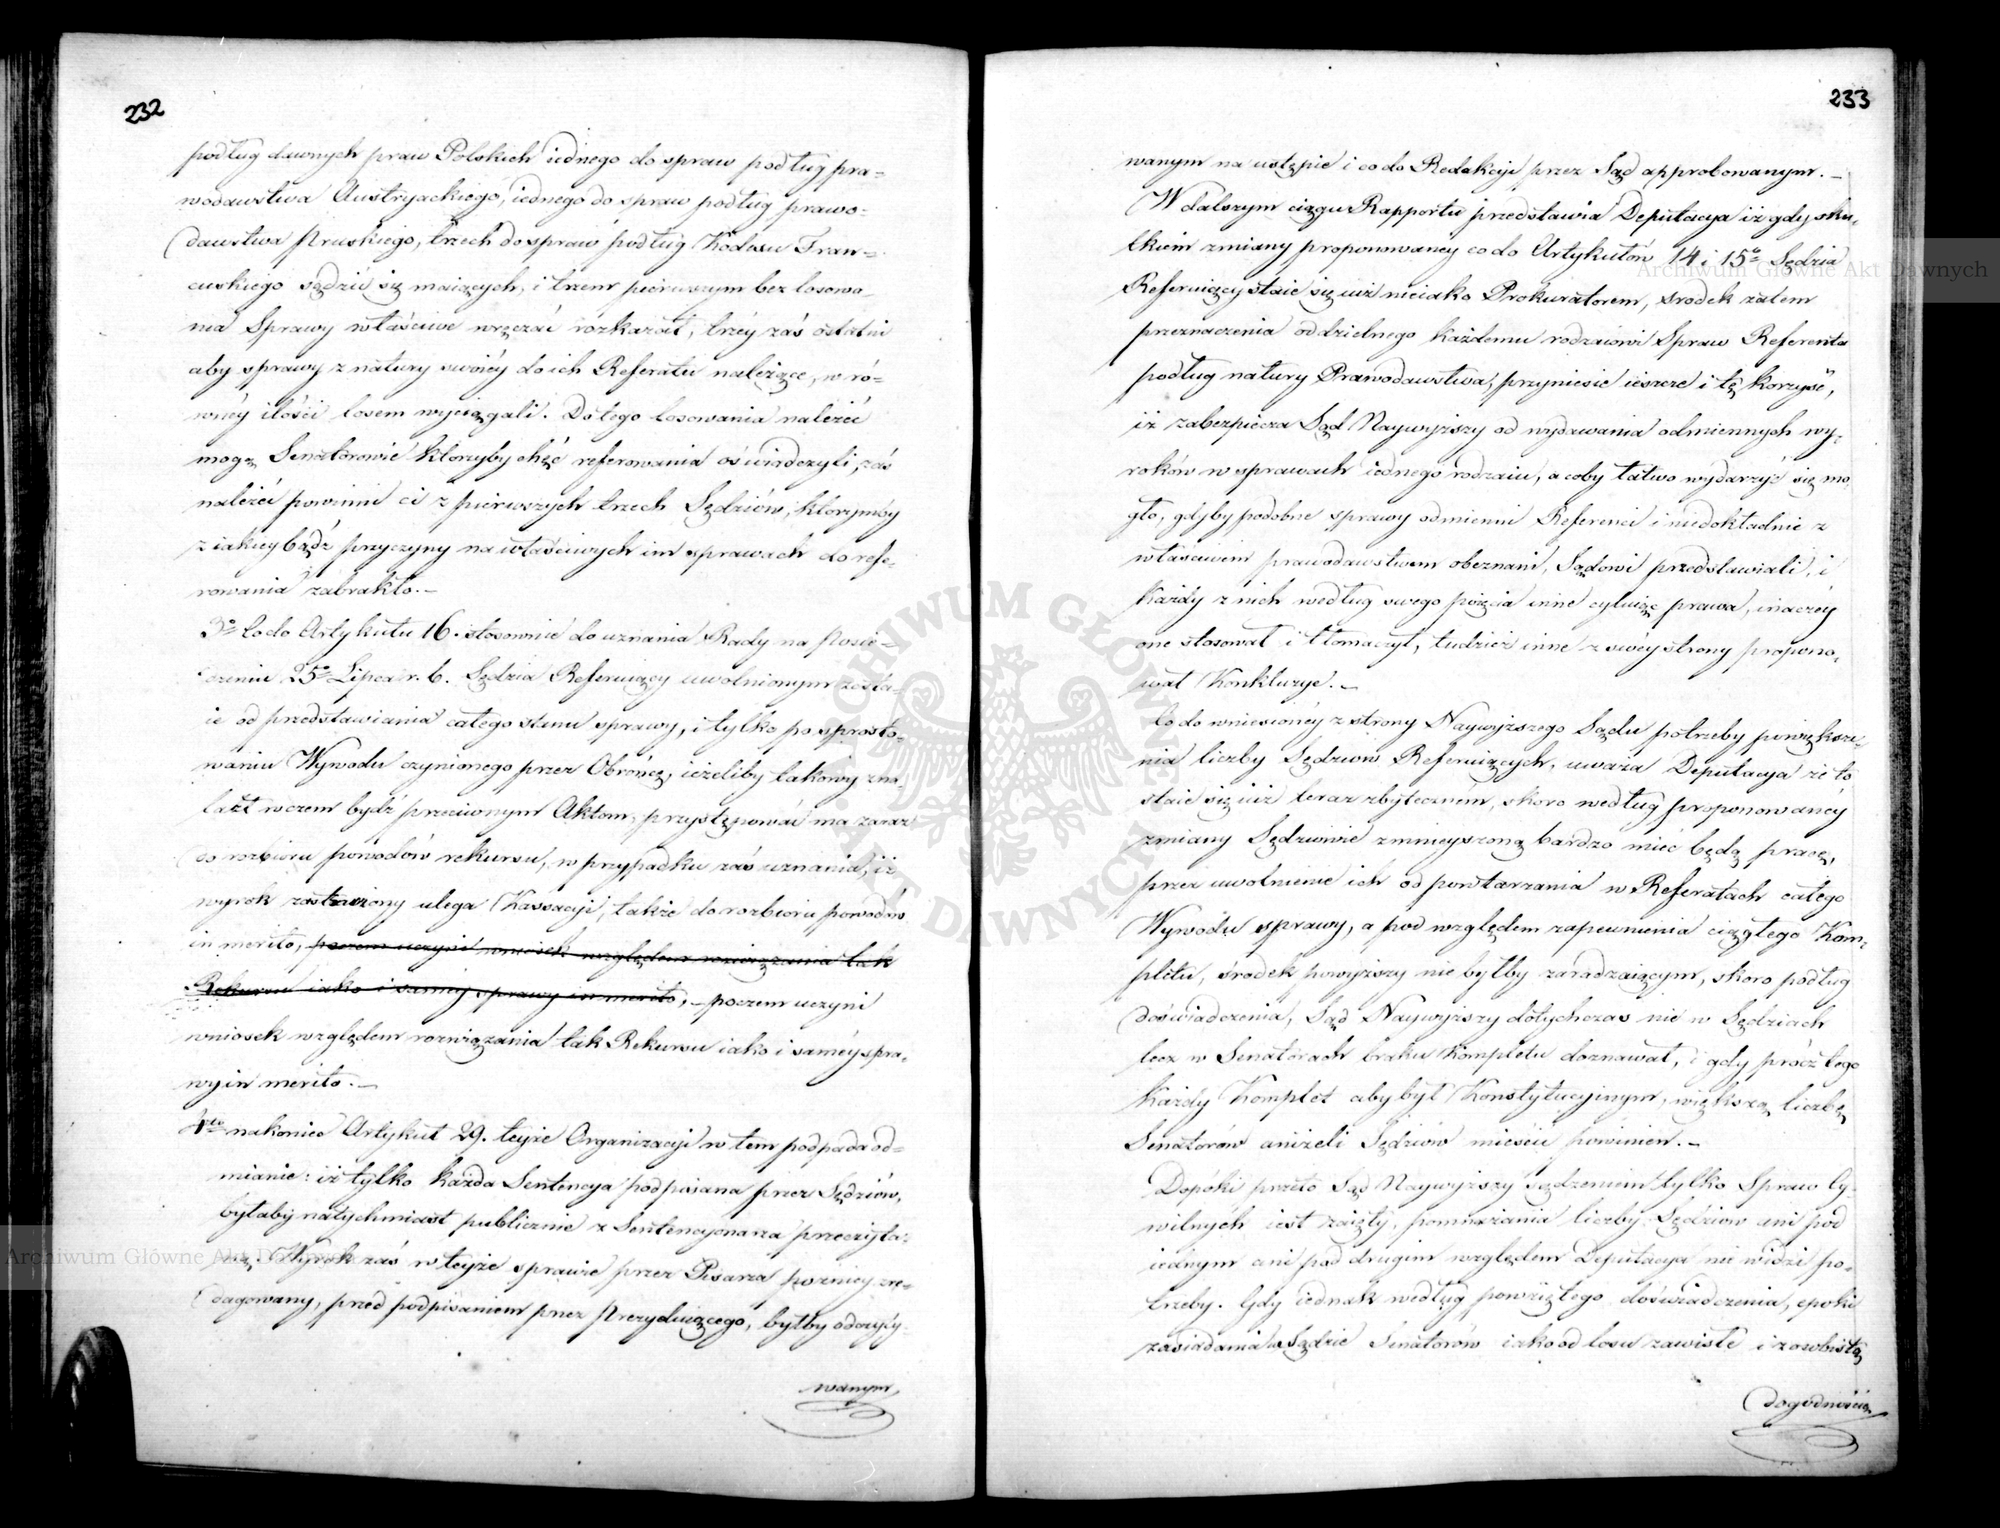 232
podług dawnych praw Polskich iednego do spraw podług pra-
wodawstwa Austryackiego, iednego do spraw podług prawo-
dawstwa Pruskiego, trzech do spraw podług Kodexu Fran-
cuskiego sądzić się maiących, i trzem pierwszym bez losowa-
nia Sprawy właściwe wręczać rozkazał, trzey zaś ostatni
aby sprawy z natury swoiéy do ich Referatu należące, w ró-
wnéy ilości losem wyciągali. Do tego losowania należeć
mogą Senatorowie którzyby chęć referowania oświadczyli, zaś
należeć powinni ci z pierwszych trzech Sędziów, którymby
z iakiey bądź przyczyny na właściwych im sprawach do refe-
rowania zabrakło.-
3o Co do Artykułu 16. stosownie do uznania Rady na Posie-
dzeniu 25o Lipca r. b. Sędzia Referuiący uwolnionym zosta-
ie od przedstawiania całego stanu sprawy, i tylko po sprosto-
waniu Wywodu czynionego przez Obrońcę, ieżeliby takowy zna-
lazł w czem bydź przeciwnym Aktom, przystępować ma zaraz
do rozbioru powodów rekursu, w przypadku zaś uznania, iż
wyrok zostawiony ulega Kassacyi, także do rozbioru powodów
in merito, poczem uczyni wniosek względem rozwiązania tak
Rekursu iako i saméy sprawy in merito, - poczem uczyni
wniosek względem rozwiązania tak Rekursu iako i saméy spra-
wy in merito.-
4to nakoniec Artykuł 29. teyże Organizacyi w tem podpada od-
mianie: iż tylko każda Sentencya podpisana przez Sędziów,
byłaby natychmiast publicznie z Sentencyonarza przeczyta-
ną, Wyrok zaś w teyże sprawie przez Pisarza pozniey zre-
dagowany, przed podpisaniem przez Prezyduiącego, byłby odczyty-
wanym
233
wanym na ustępie i co do Redakcyi przez Sąd approbowanym.-
W dalszym ciągu Rapportu przedstawia Deputacya iż gdy sku-
tkiem zmiany proponowaney co do Artykułów 14 i 15o Sędzia
Referuiący staie się iuż nieiako Prokuratorem, srodek zatem
przeznaczenia oddzielnego każdemu rodzaiowi Spraw Referenta
podług natury Prawodawstwa, przyniesie ieszcze i tę korzyść,
iż zabezpiecza Sąd Naywyższy od wydawania odmiennych wy-
roków w sprawach iednego rodzaiu, a coby łatwo wydarzyć się mo-
gło, gdyby podobne sprawy odmienni Referenci i niedokładnie z
właściwem prawodawstwem obeznani, Sądowi przedstawiali, i
każdy z nich według swego poięcia inne cytuiąc prawa, inaczéy
one stosował i tłomaczył, tudzież inne z swéy strony propono-
wał Konkluzye.-
Co do wniesionéy z strony Naywyższego Sądu potrzeby powiększe-
nia liczby Sędziów Referuiących, uważa Deputacya że to
staie się iuż teraz zbyteczném, skoro według proponowanéy
zmiany Sędziowie zmnieyszoną bardzo mieć będą pracę,
przez uwolnienie ich od powtarzania w Referatach całego
Wywodu sprawy, a pod względem zapewnienia ciągłego Kom-
pletu, środek powyższy nie byłby zaradzaiącym, skoro podług
doświadczenia, Sąd Naywyższy dotychczas nie w Sędziach
lecz w Senatorach braku Kompletu doznawał, i gdy prócz tego
każdy Komplet aby był Konstytucyinym, większą liczbę
Senatorów aniżeli Sędziów mieścić powinien.-
Dopóki przeto Sąd Naywyższy Sądzeniem tylko Spraw Cy-
wilnych iest zaięty, pomnażania liczby Sędziów ani pod
iednym ani pod drugim względem Deputacya nie widzi po-
trzeby. Gdy iednak według powziętego doświadczenia, epoki
zasiadania w Sądzie Senatorów iako od losu zawisłe i z osobistą
dogodnością